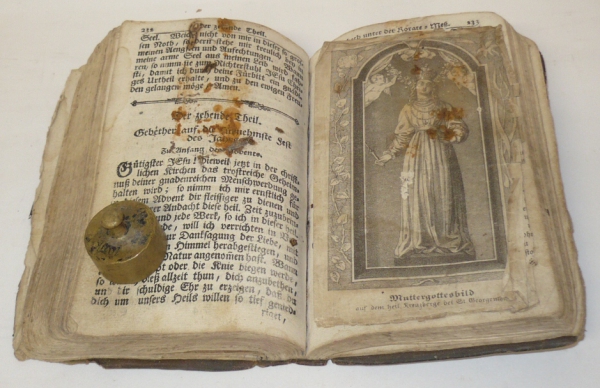 232 Der zehende Theil.
Seel. Weiche nicht von mir in dieser
sen Noth, sondern stehe mir treulich
meinen Aengsten und Anfechtungen,
meine arme Seel aus meinen Leib wird
ren, so nimm sie zum Richterstuhl JEsu Chri-
sti, damit ich durch deine Fürbitt ein
ges Urtheil erhalte, und zu den ewigen Freu-
den gelangen möge, Amen.
Der zehende Theil.
Gebether auf die vornehmste Fest
des Jahrs.
Zu Anfang des Advents.
Gütigster JEsu! dieweil jetzt in der christ-
lichen Kirchen das trostreiche Geheim-
nuß deiner gnadenreichen Menschwerdung
halten wird; so nimm ich mir ernstlich für
diesem Advent dir fleissiger zu dienen und
Andacht diese heil. Zeit zuzubrin-
und jede Werk, so ich in dieser
de, will ich verrichten in
zur Danksagung der Liebe, mit
Himmel herabgestiegen, und
Natur angenommen hast. Wann
oder die Knie biegen werde,
so dieß allzeit thun, dich anzubethen,
und dir schuldige Ehr zu erzeigen, daß du
dich um unsers Heils willen so tief gernied-
riget,
unter der Rorate-Meß. 233
Muttergottesbild
auf dem heil. Kreuzberge bei